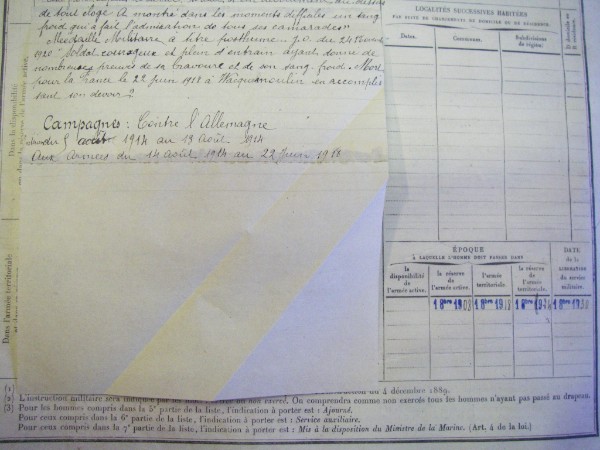 de tout éloge. A montré dans les moments difficiles un sang
froid qui a fait l'admiration de tous ses camarades.
Médaille Militaire à titre posthume
1920 "Soldat courageux et plein d'entrain ayant donné de
nombreuses preuves de sa bravoure et de son sang froid. Mort
pour la France le 22 juin 1918 à Wacquemoulin en accomplis
sant son devoir"
Campagnes: Contre l'Allemagne
août 1914 au 13 Août 1914
Aux Armées du 14 Août 1914 au 22 Juin 1918
LOCALITÉS SUCCESSIVES HABITÉES
PAR SUITE DE CHANGEMENTS DE DOMICILE OU DE RÉSIDENCE.
Dates.
Communes.
Subdivisions
de région.
Dans la disponibilité
Dans l'armée territoriale
ÉPOQUE
À LAQUELLE L'HOMME DOIT PASSER DANS
DATE
de la
libération
du service
militaire.
la
disponibilité
de
l'armée active.
la réserve
de
l'armée active.
l'armée
territoriale.
la réserve
de
l'armée
territoriale.
1903
1918
(1)
du 4 décembre 1889.
(2) L'instruction militaire sera indiquée par les
exercé. On comprendra comme non exercés tous les hommes n'ayant pas passé au drapeau.
(3) Pour les hommes compris dans la 5e partie de la liste, l'indication à porter est : Ajourné.
Pour ceux compris dans la 6e partie de la liste, l'indication à porter est : Service auxiliaire.
Pour ceux compris dans la 7e partie de la liste, l'indication à porter est : Mis à la disposition du Ministre de la Marine. (Art. 4 de la loi.)